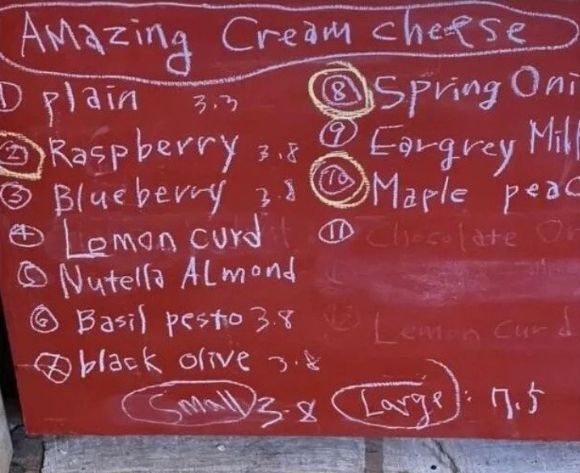 Amazing Cream cheese
① plain 3.3
② Raspberry 3.8
③ Blueberry 3.8
④ Lemon curd
⑤ Nutella Almond
⑥ Basil pesto 3.8
⑦ black olive 3.8
⑧ Spring Oni
⑨ Eargrey Mil
⑩ Maple peac
⑪ Chocolate Or
Lemon curd
Small 3.8 Large: 7.5